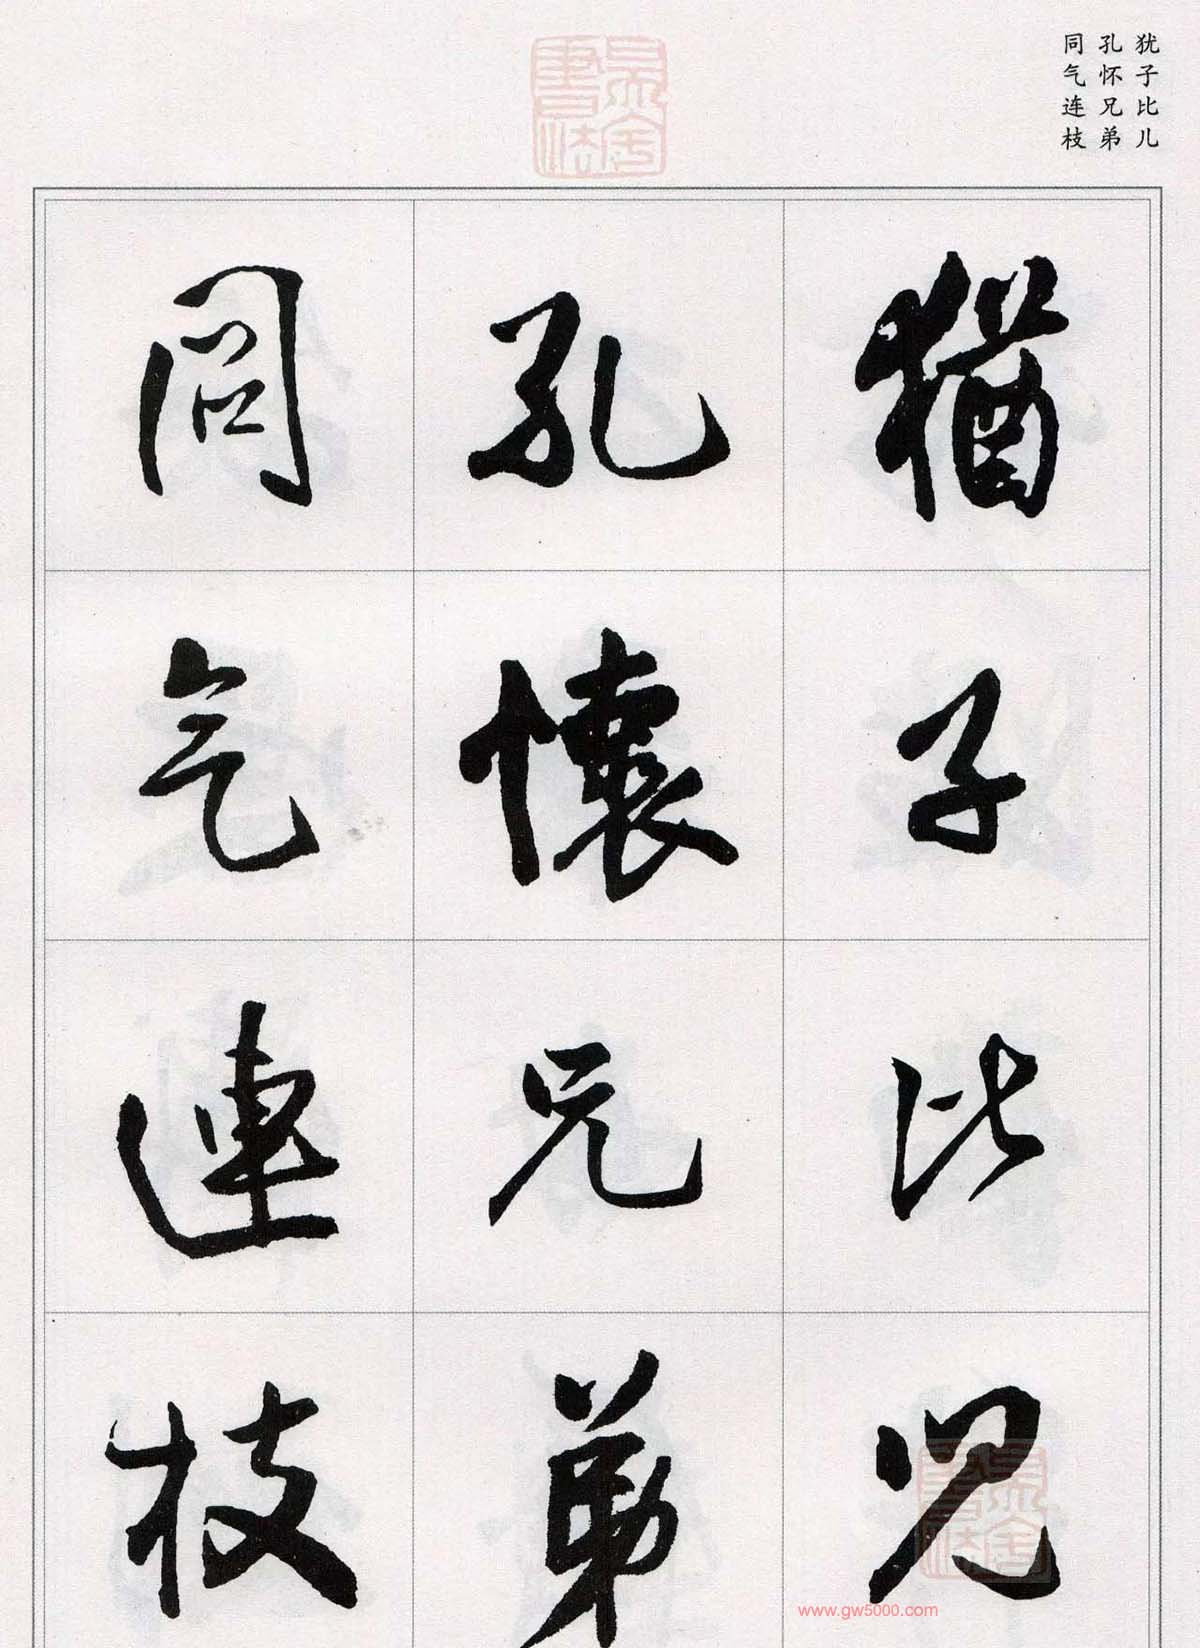 犹子比儿
孔怀兄弟
同气连枝
猶子比兒
孔懷兄弟
同气連枝
www.gw5000.com